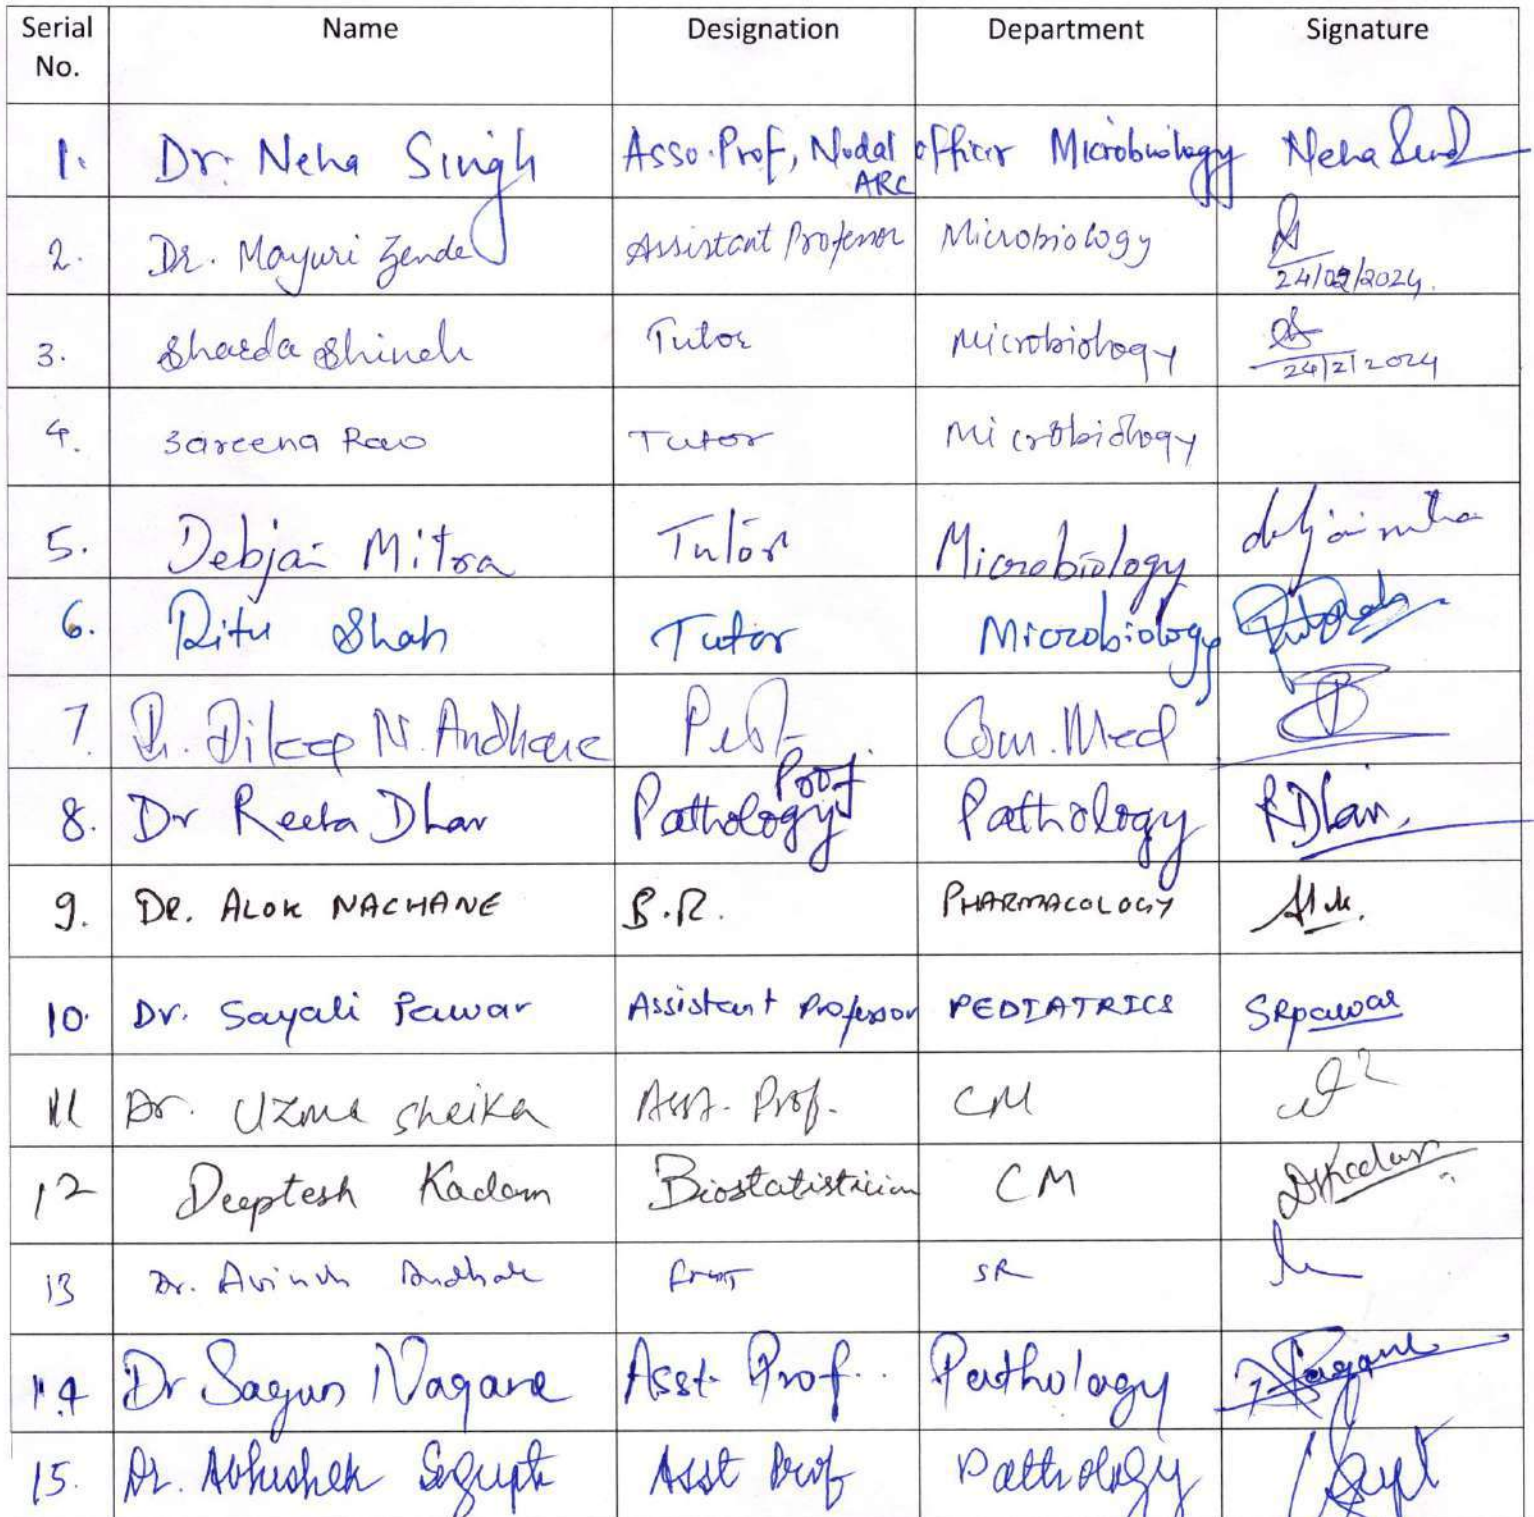 Serial No. Name Designation Department Signature
1. Dr. Neha Singh Asso. Prof, Nodal officer ARC Microbiology Neha
2. Dr. Mayuri Zende Assistant Professor Microbiology 24/02/2024.
3. Sharda Shinde Tutor Microbiology 24/2/2024
4. Zareena Rao Tutor Microbiology
5. Debjai Mitra Tutor Microbiology
6. Ritu Shah Tutor Microbiology
7. Dr. Dileep N. Andhare Com. Med
8. Dr Reeta Dhar Prof Pathology Pathology RDhar.
9. DR. ALOK NACHANE PHARMACOLOGY
10. Dr. Sayali Pawar Assistant Professor PEDIATRICS SRpawar
11 Dr. Uzma Sheika Asst. Prof. CM
12 Deeptesh Kadam Biostatistician CM
13 Dr. SR
14 Dr Sagun Nagare Asst. Prof. Pathology
15. Dr. Abhishek Asst Prof Pathology